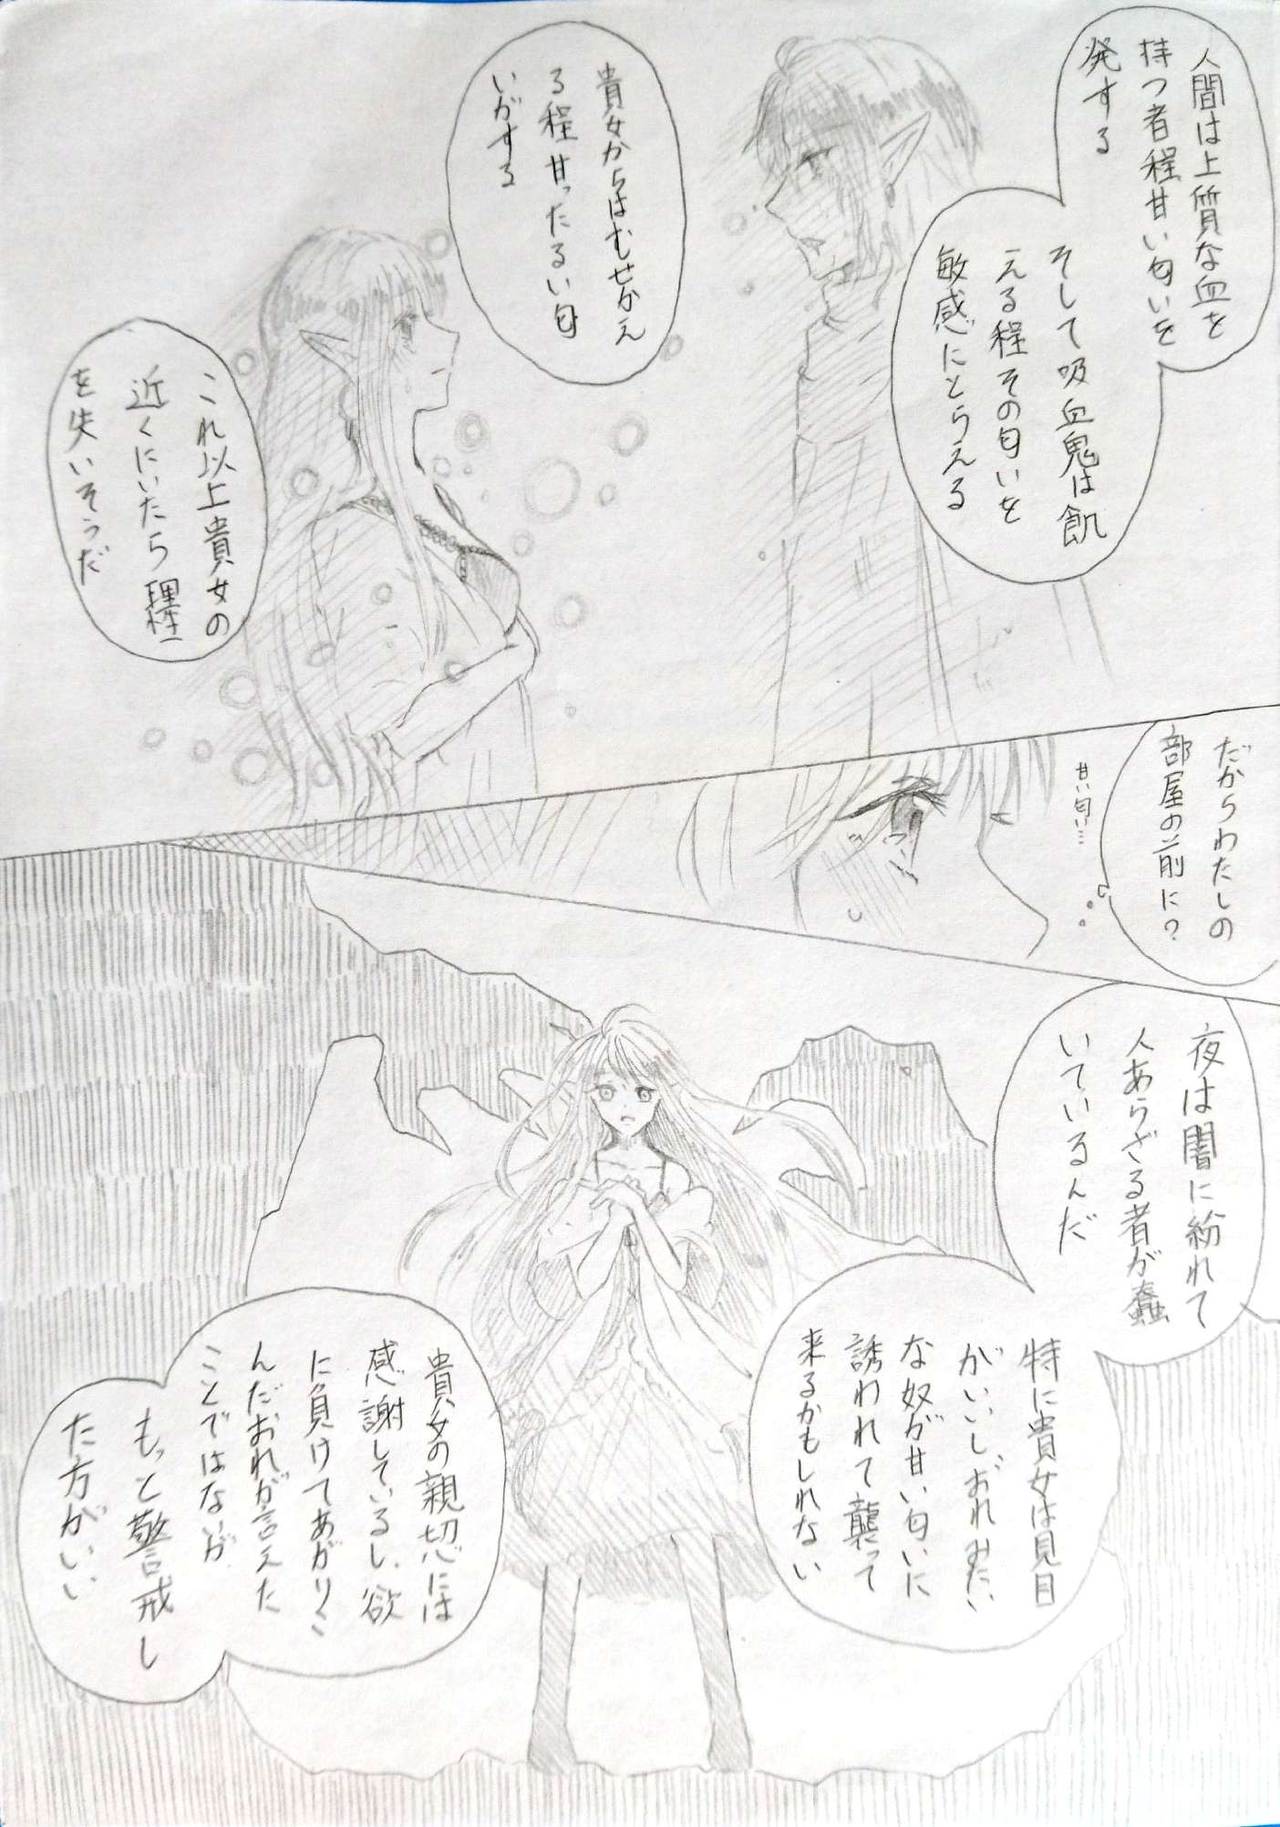 人間は上質な血を
持つ者程甘い匂いを
発する
そして吸血鬼は飢
える程その匂いを
敏感にとらえる
貴女からはむせかえ
る程甘ったるい匂
いがする
これ以上貴女の
近くにいたら理性
を失いそうだ
だからわたしの
部屋の前に?
甘い匂い…
夜は闇に紛れて
人あらざる者が蠢
いているんだ
特に貴女は見目
がいいし、おれみたい
な奴が甘い匂いに
誘われて襲って
来るかもしれない
貴女の親切には
感謝しているし、欲
に負けてあがりこ
んだおれが言えた
ことではないが
もっと警戒し
た方がいい